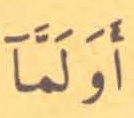 أَوَلَمَّآ